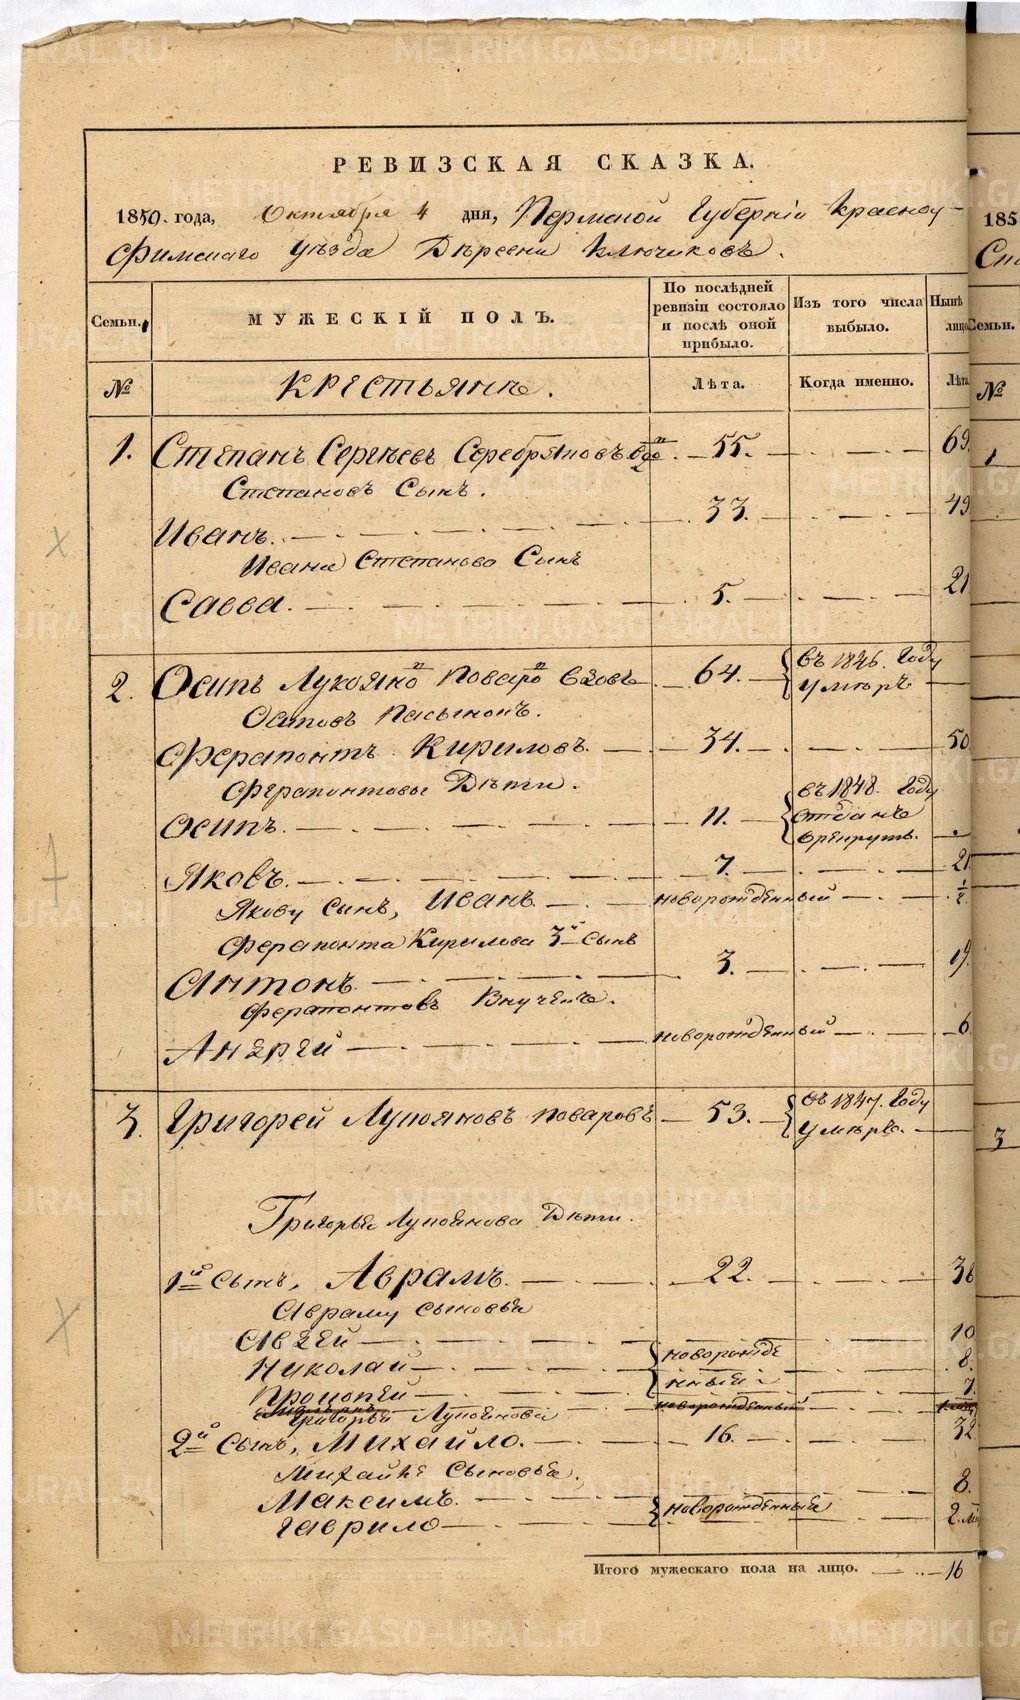 METRIKI.GASO-URAL.RU
РЕВИЗСКАЯ СКАЗКА.
1850. года, Октября 4 дня, Пермской Губерніи Красноу-
фимскаго Уѣзда Деревни Ключиковъ.
Семьи. МУЖЕСКІЙ ПОЛЪ. По послѣдней ревизіи состояло и послѣ оной прибыло. Изъ того числа выбыло. Нынѣ лицо
№ КРЕСТЬЯНЕ. Лѣта. Когда именно. Лѣта
1. Степанъ Сергѣевъ Серебряновъ 55. 69.
Степановъ Сынъ.
Иванъ. 33. 49.
Ивана Степанова Сынъ
Савва. 5. 21
2. Осипъ Лукояно Поваро 64. въ 1846. Году умѣръ
Осиповъ Пасынокъ.
Ферапонтъ Кириловъ. 34. 50.
Ферапонтовы Дѣти.
Осипъ. 11. въ 1848. Году отданъ врекруты.
Яковъ. 7. 21
Якову Сынъ, Иванъ новорожденный 1/2.
Ферапонта Кирилова 3й Сынъ
Антонъ 3. 19.
Ферапонтовъ Внучекъ.
Андрей новорожденный 6.
3. Григорей Лукояновъ Поваровъ 53. въ 1847. Году умѣръ.
Григорья Лукоянова Дѣти.
1й Сынъ, Аврамъ. 22. 36
Авраму Сыновья
Авдей 10
Николай новорожде 8.
Прокопей нныя 7.
новорожденный
Григорья Лукоянова
2й Сынъ, Михайло. 16. 32
Михайлѣ Сыновья.
Максимъ. 8.
Гаврило новорожденныя 2. м
Итого мужескаго пола на лицо. 16
185
Семьи.
№
1
3